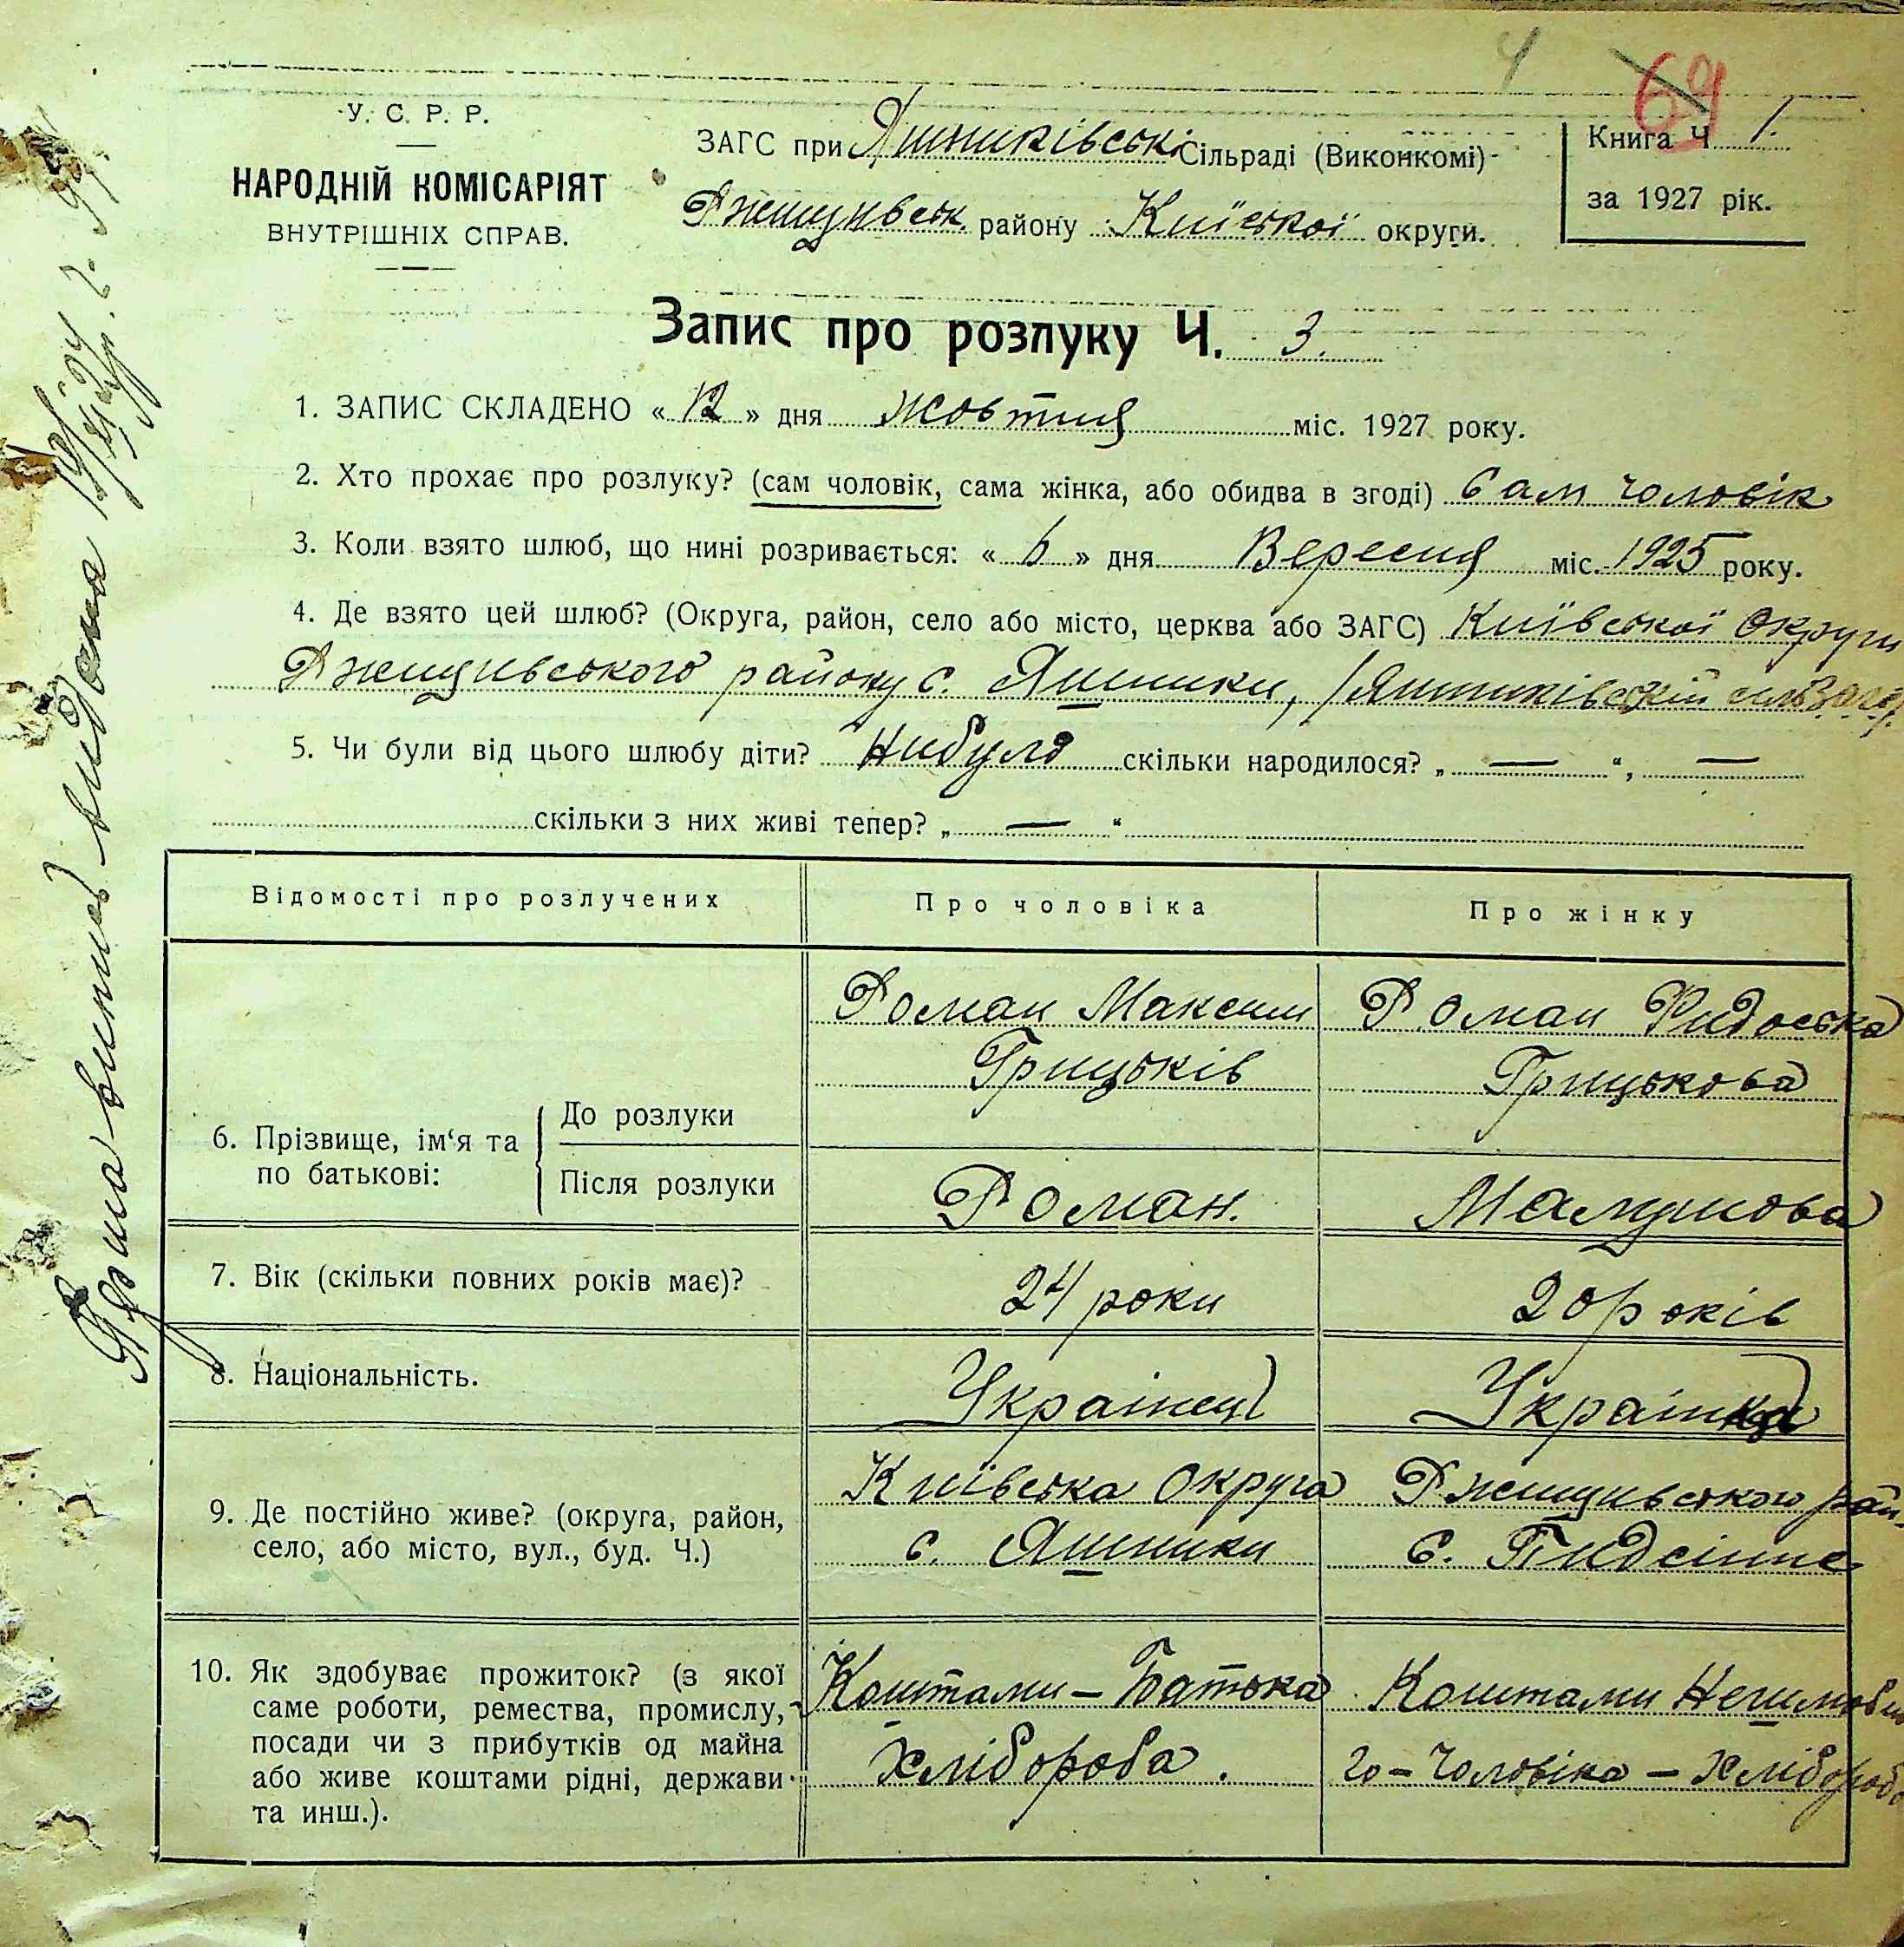 4
69
У. С. Р. Р.
НАРОДНІЙ КОМІСАРІЯТ
ВНУТРІШНІХ СПРАВ.
ЗАГС при Яшниківські Сільраді (Виконкомі)
Ржищивськ. району Київської округи.
Книга Ч 1.
за 1927 рік.
Запис про розлуку Ч. 3.
1. ЗАПИС СКЛАДЕНО « 12 » дня жовтня міс. 1927 року.
2. Хто прохає про розлуку? (сам чоловік, сама жінка, або обидва в згоді) Сам чоловік
3. Коли взято шлюб, що нині розривається: « 6 » дня Вересня міс. 1925 року.
4. Де взято цей шлюб? (Округа, район, село або місто, церква або ЗАГС) Київської Округи
Ржищивського району с. Яшники, /Яшниківській
5. Чи були від цього шлюбу діти? Нибуло скільки народилося? „ — “, —
скільки з них живі тепер? „ — “
Відомості про розлучених
Про чоловіка
Про жінку
6. Прізвище, ім‘я та по батькові:
До розлуки
Роман Максим
Грицьків
Роман Хидоська
Грицькова
Після розлуки
Роман.
Мамунова
7. Вік (скільки повних років має)?
24 роки
20 років
8. Національність.
Украінець
Украінка
9. Де постійно живе? (округа, район,
село, або місто, вул., буд. Ч.)
Київська Округа
с. Яшники
Ржищивського рай.
с. Пидсінне
10. Як здобуває прожиток? (з якої
саме роботи, ремества, промислу,
посади чи з прибутків од майна
або живе коштами рідні, держави
та инш.).
Коштами – Батька
хлібороба.
Коштами
го – Чоловіка – Хлібороба
виписъ видана